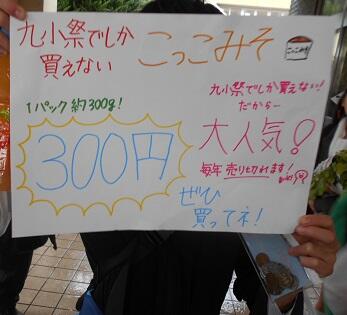 九小祭でしか
買えない
こっこみそ
こっこみそ
1パック 約300g!
300円
九小祭でしか買えない!
だから〜
大人気!
毎年売り切れます!
ぜひ
買ってネ!